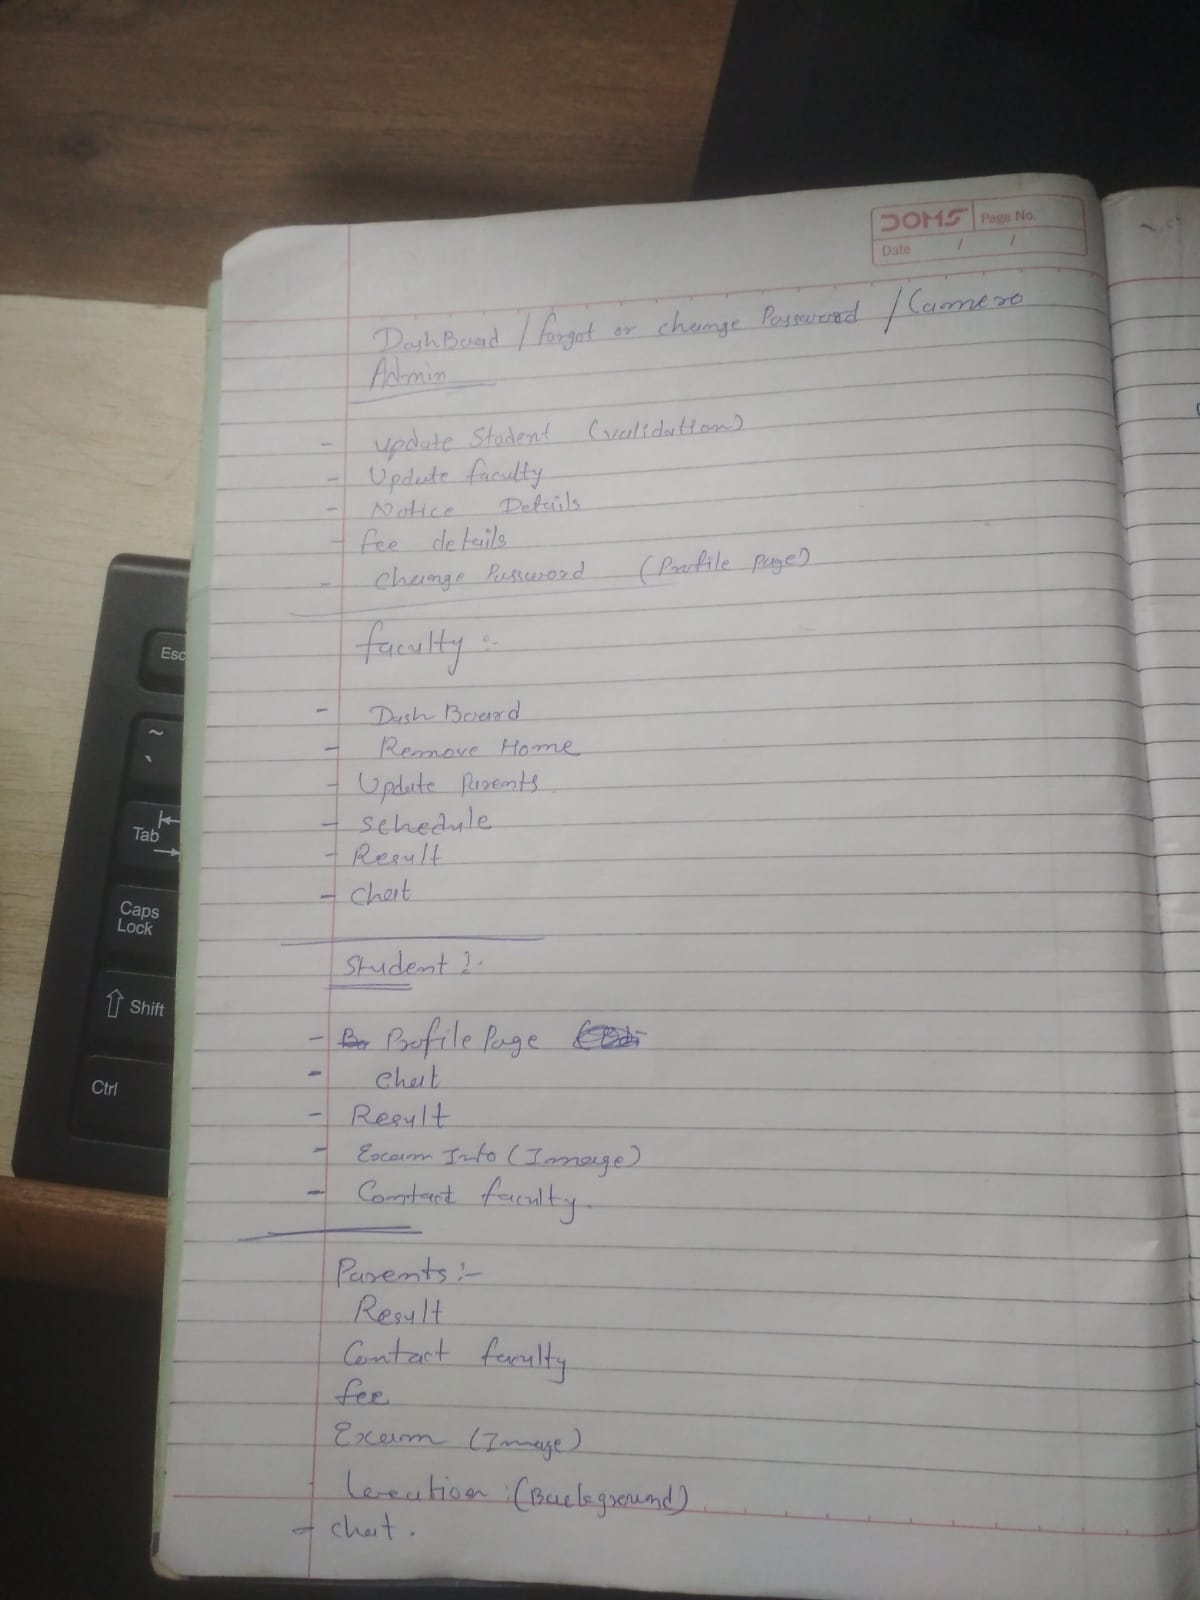 DOMS Page No.
Date / /
DashBoard / forgot or change Password / Camera
Admin
- update Student (validation)
- Update faculty
- Notice Details
- fee details
- change Password (Profile page)
faculty :-
- Dash Board
- Remove Home
- Update Parents
- schedule
- Result
- chat
Student :-
- Profile Page
- chat
- Result
- Exam Info (Image)
- Contact faculty.
Parents :-
Result
Contact faculty
fee
Exam (Image)
- Location : (Background)
- chat.
Esc
~
`
Tab
Caps
Lock
Shift
Ctrl